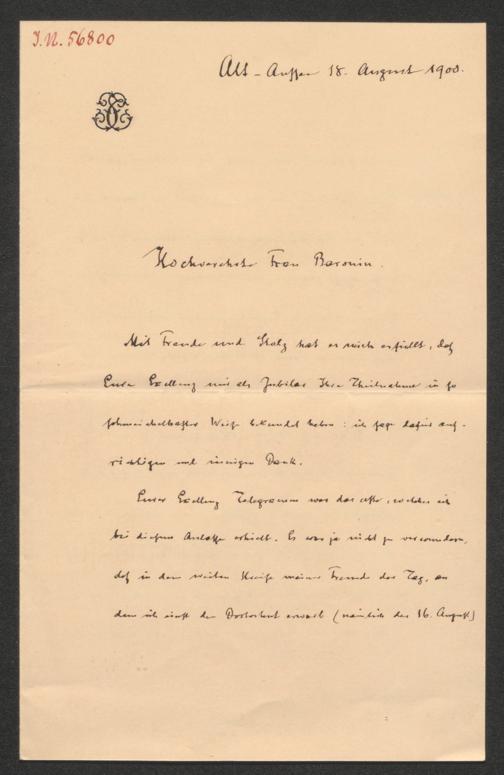 I.N. 56800
Alt-Aussee 18. August 1900.
Hochverehrte Frau Baronin.
Mit Freude und Stolz hat es mich erfüllt, daß
Eure Exellenz mir als Jubilar Ihre Theilnahme in so
schmeichelhafter Weise bekundet haben: ich sage dafür auf-
richtigen und innigen Dank.
Eurer Exellenz Telegramm war das erste, welches ich
bei diesem Anlasse erhielt. Es war ja nicht zu verwundern,
daß in dem weiten Kreise meiner Freunde der Tag, an
dem ich einst den Doctorhut erwarb (nämlich der 16. August)